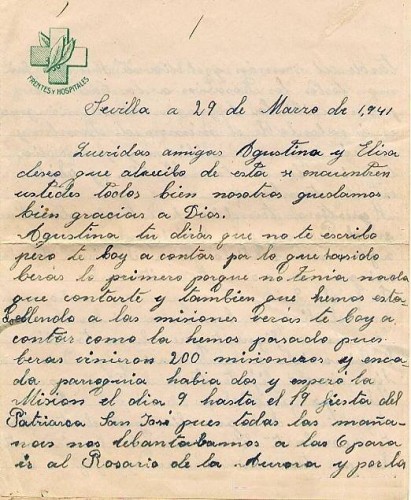 FRENTES Y HOSPITALES
Sevilla a 29 de Marzo de 1,941
Queridas amigas Agustina y Elisa
deseo que al recibo de esta se encuentren
ustedes todos bien nosotros quedamos
bien gracias a Dios.
Agustina tu diras que no te escribo
pero te boy a contar por lo que ha sido
berás lo primero porque no tenia nada
que contarte y tambien que hemos esta
llendo a las misiones verás te boy a
contar como la hemos pasado pues
beras vinieron 200 misioneros y en ca
da parroquia habia dos y espero la
Mision el dia 9 hasta el 19 fiesta del
Patriarca San José pues todas las maña-
nas nos lebantabamos a las 6 para
ir al Rosario de la Aurora y por la